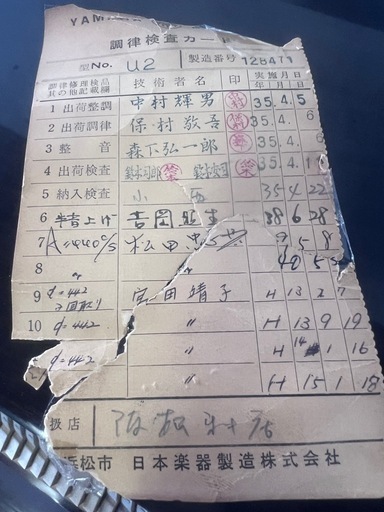 YAMA
調律検査カード
型No. U2 製造番号 128471
調律修理検品其の他記載欄 技術者名 印 実施月日 年月日
1 出荷整調 中村輝男 35.4.5
2 出荷調律 保村敬吾 35.4. 6
3 整音 森下弘一郎 35.4.
4 出荷検査 35.4.1
5 納入検査 35 4 22
6 半音上げ 吉岡 38 6 28
7 A=440c/s 松田 9 5 8
8 〃 〃 40 5
9 ♂=442 宮田靖子 H 13 2 7
10 ♂=442 〃 H 13 9 19
♂=442 〃 H 14 1 16
〃 H 15 1 18
扱店 阪松
浜松市 日本楽器製造株式会社